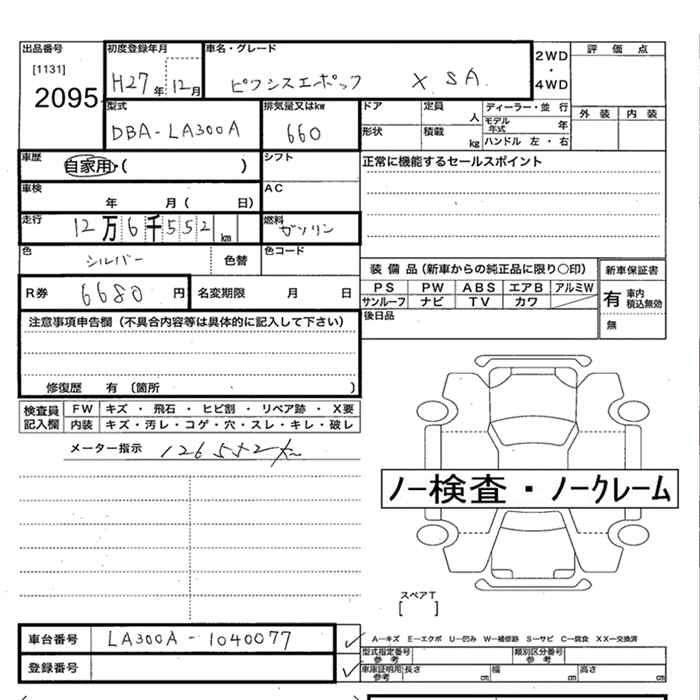 出品番号
[1131]
2095
初度登録年月
H27年 12月
車名・グレード
ピクシスエポック X SA
2WD
・
4WD
評価点
外装 内装
型式
DBA-LA300A
排気量又はkw
660
ドア
定員
人
ディーラー・並行
モデル年式 年
形状
積載
kg
ハンドル 左・右
車歴
自家用・( )
シフト
正常に機能するセールスポイント
車検
年 月( 日)
AC
走行
12万6千552km
燃料
ガソリン
色
シルバー
色替
色コード
装備品(新車からの純正品に限り○印)
新車保証書
PS PW ABS エアB アルミW
サンルーフ ナビ TV カワ
有 車内積込無効
無
R券
6680円
名変期限 月 日
後日品
注意事項申告欄(不具合内容等は具体的に記入して下さい)
修復歴 有 (箇所 )
検査員記入欄
FW キズ・飛石・ヒビ割・リペア跡・X要
内装 キズ・汚レ・コゲ・穴・スレ・キレ・破レ
メーター指示 126552km
ノー検査・ノークレーム
スペアT
[ ]
車台番号
LA300A-1040077
A-キズ E-エクボ U-凹み W-補修跡 S-サビ C-腐食 XX-交換済
型式指定番号
参考
類別区分番号
参考
登録番号
車庫証明用
参考
長さ cm
幅 cm
高さ cm